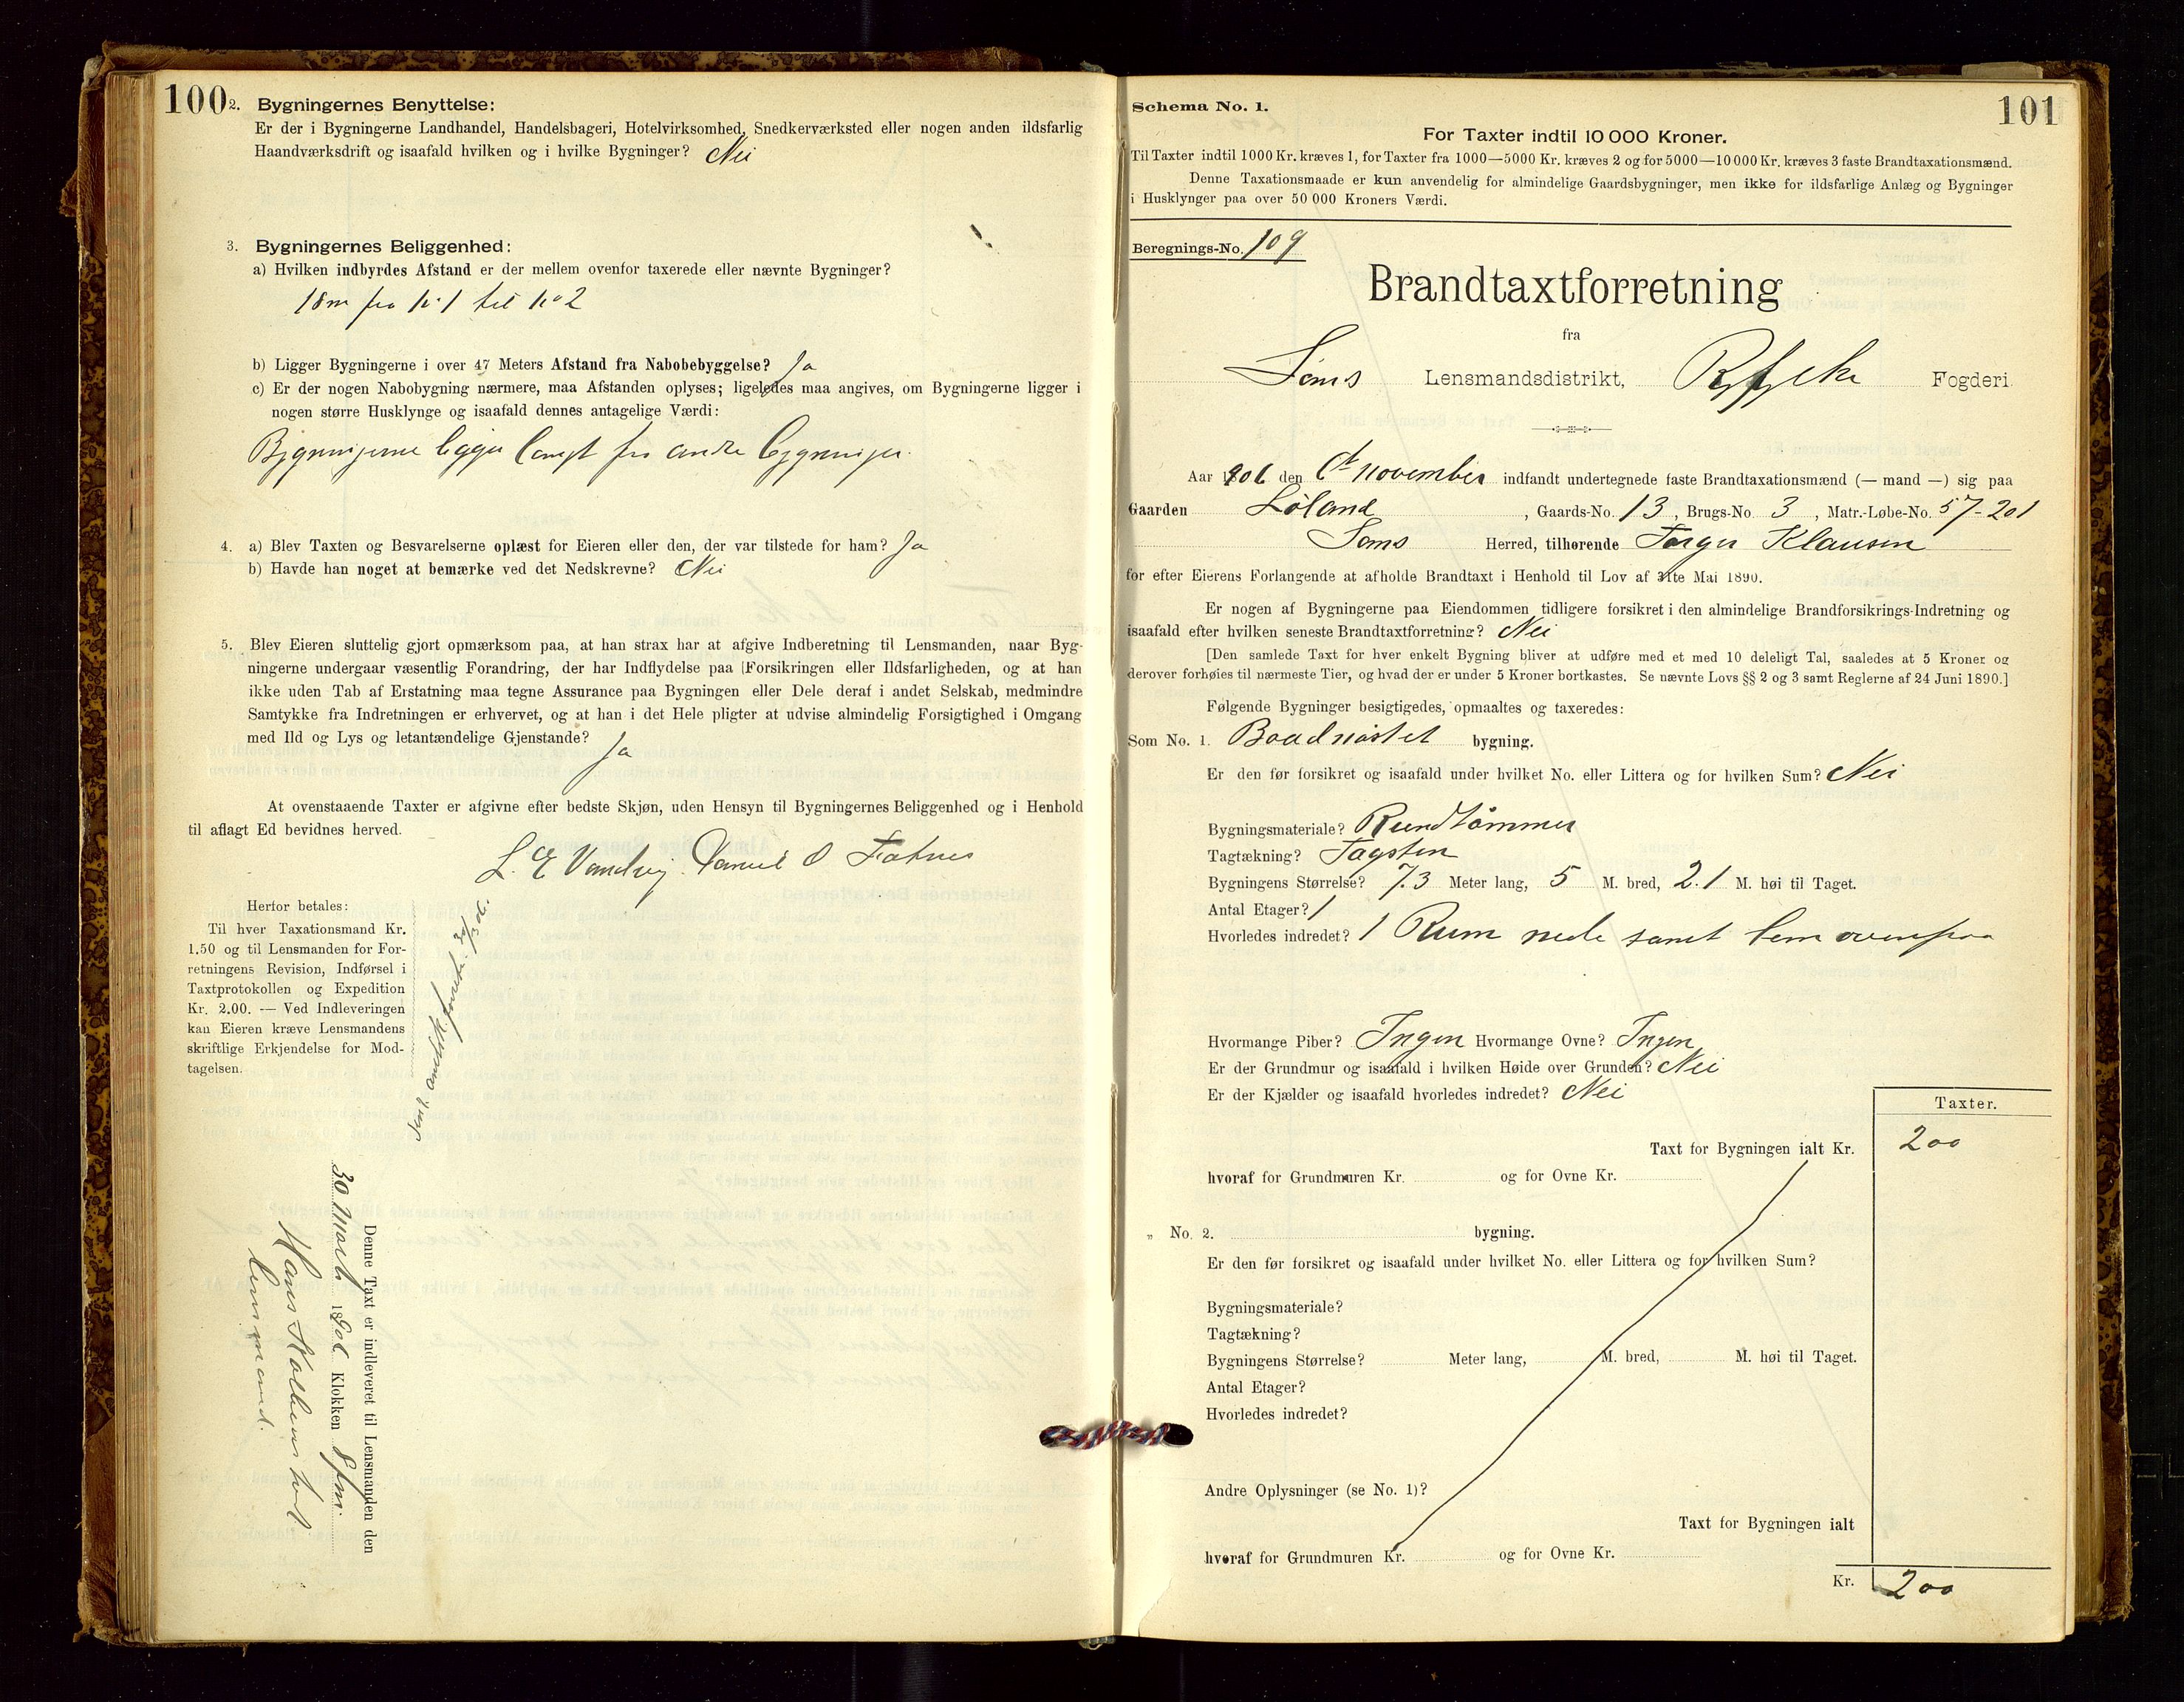 100
2. Bygningernes Benyttelse:
Er der i Bygningerne Landhandel, Handelsbageri, Hotelvirksomhed, Snedkerværksted eller nogen anden ildsfarlig
Haandværksdrift og isaafald hvilken og i hvilke Bygninger? Nei
3. Bygningernes Beliggenhed:
a) Hvilken indbyrdes Afstand er der mellem ovenfor taxerede eller nævnte Bygninger?
18m fra No 1 til No 2
b) Ligger Bygningerne i over 47 Meters Afstand fra Nabobebyggelse? Ja
c) Er der nogen Nabobygning nærmere, maa Afstanden oplyses; ligeledes maa angives, om Bygningerne ligger i
nogen større Husklynge og isaafald dennes antagelige Værdi:
Bygningerne ligger langt fra andre Bygninger.
4. a) Blev Taxten og Besvarelserne oplæst for Eieren eller den, der var tilstede for ham? Ja
b) Havde han noget at bemærke ved det Nedskrevne? Nei
5. Blev Eieren sluttelig gjort opmærksom paa, at han strax har at afgive Indberetning til Lensmanden, naar Byg-
ningerne undergaar væsentlig Forandring, der har Indflydelse paa Forsikringen eller Ildsfarligheden, og at han
ikke uden Tab af Erstatning maa tegne Assurance paa Bygningen eller Dele deraf i andet Selskab, medmindre
Samtykke fra Indretningen er erhvervet, og at han i det Hele pligter at udvise almindelig Forsigtighed i Omgang
med Ild og Lys og letantændelige Gjenstande? Ja
At ovenstaaende Taxter er afgivne efter bedste Skjøn, uden Hensyn til Bygningernes Beliggenhed og i Henhold
til aflagt Ed bevidnes herved.
L. E Vandvig. Daniel O
Herfor betales:
Til hver Taxationsmand Kr.
1.50 og til Lensmanden for For-
retningens Revision, Indførsel i
Taxtprotokollen og Expedition
Kr. 2.00. — Ved Indleveringen
kan Eieren kræve Lensmandens
skriftlige Erkjendelse for Mod-
tagelsen.
Denne Taxt er indleveret til Lensmanden den
30 Klokken 8 fm.
Hans
lensmand.
Schema No. 1.
101
For Taxter indtil 10 000 Kroner.
Til Taxter indtil 1000 Kr. kræves 1, for Taxter fra 1000—5000 Kr. kræves 2 og for 5000—10 000 Kr. kræves 3 faste Brandtaxationsmænd.
Denne Taxationsmaade er kun anvendelig for almindelige Gaardsbygninger, men ikke for ildsfarlige Anlæg og Bygninger
i Husklynger paa over 50 000 Kroners Værdi.
Beregnings-No. 109
Brandtaxtforretning
fra
Sands Lensmandsdistrikt, Ryfylke Fogderi.
Aar 1906 den November indfandt undertegnede faste Brandtaxationsmænd (— mand —) sig paa
Gaarden Løland, Gaards-No. 13, Brugs-No. 3, Matr.-Løbe-No. 57-201
Sands Herred, tilhørende Torger Klausen
for efter Eierens Forlangende at afholde Brandtaxt i Henhold til Lov af 31te Mai 1890.
Er nogen af Bygningerne paa Eiendommen tidligere forsikret i den almindelige Brandforsikrings-Indretning og
isaafald efter hvilken seneste Brandtaxtforretning? Nei
[Den samlede Taxt for hver enkelt Bygning bliver at udføre med et med 10 deleligt Tal, saaledes at 5 Kroner og
derover forhøies til nærmeste Tier, og hvad der er under 5 Kroner bortkastes. Se nævnte Lovs §§ 2 og 3 samt Reglerne af 24 Juni 1890.]
Følgende Bygninger besigtigedes, opmaaltes og taxeredes:
Som No. 1. Baadnøstet bygning.
Er den før forsikret og isaafald under hvilket No. eller Littera og for hvilken Sum? Nei
Bygningsmateriale? Rundtømmer
Tagtækning? Tagsten
Bygningens Størrelse? 7.3 Meter lang, 5 M. bred, 2.1 M. høi til Taget.
Antal Etager? 1
Hvorledes indredet? 1 Rum nede samt lem ovenpaa
Hvormange Piber? Ingen Hvormange Ovne? Ingen
Er der Grundmur og isaafald i hvilken Høide over Grunden? Nei
Er der Kjælder og isaafald hvorledes indredet? Nei
Taxter.
Taxt for Bygningen ialt Kr. 200
hvoraf for Grundmuren Kr. og for Ovne Kr.
„ No. 2. bygning.
Er den før forsikret og isaafald under hvilket No. eller Littera og for hvilken Sum?
Bygningsmateriale?
Tagtækning?
Bygningens Størrelse? Meter lang, M. bred, M. høi til Taget.
Antal Etager?
Hvorledes indredet?
Andre Oplysninger (se No. 1)?
Taxt for Bygningen ialt
hvoraf for Grundmuren Kr. og for Ovne Kr.
Kr. 200